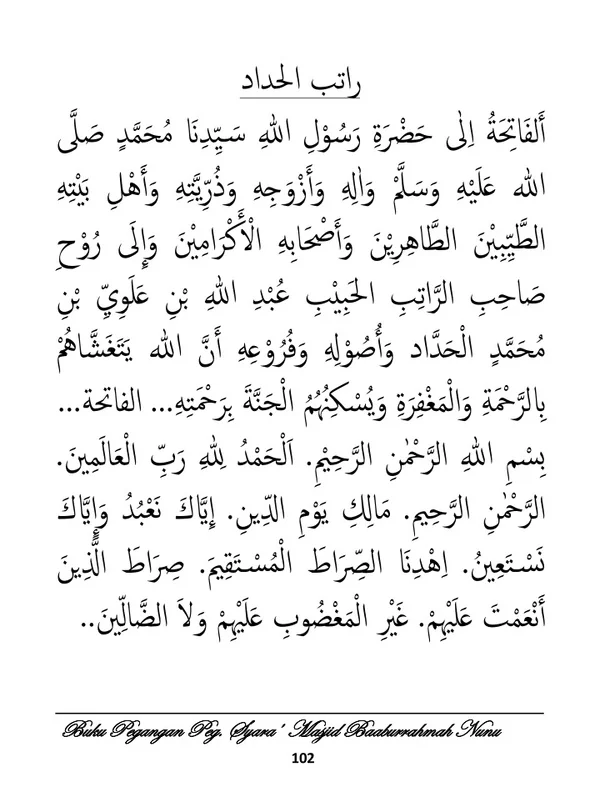 راتب الحداد
أَلفَاتِحَةُ اِلٰى حَضْرَةِ رَسُوْلِ اللهِ سَيِّدِنَا مُحَمَّدٍ صَلَّى
الله عَلَيْهِ وَسَلَّمْ وَاٰلِهِ وَأَزْوَجِهِ وَذُرِّيَّتِهِ وَأَهْلِ بَيْتِهِ
الطَّيِّبِيْنَ الطَّاهِرِيْنَ وَأَصْحَابِهِ الْأَكْرَامِيْنَ وَإِلَى رُوْحِ
صَاحِبِ الرَّاتِبِ الحَبِيْبِ عُبْدِ اللهِ بْنِ عَلَوِيِّ بْنِ
مُحَمَّدٍ الْحَدَّاد وَأُصُوْلِهِ وَفُرُوْعِهِ أَنَّ الله يَتَغَشَّاهُمْ
بِالرَّحْمَةِ وَالْمَغْفِرَةِ وَيُسْكِنُهُمُ الْجَنَّةَ بِرَحْمَتِهِ... الفاتحة...
بِسْمِ اللهِ الرَّحْمٰنِ الرَّحِيْمِ. اَلْحَمْدُ لِلهِ رَبِّ الْعَالَمِينَ.
الرَّحْمٰنِ الرَّحِيمِ. مَالِكِ يَوْمِ الدِّينِ. إِيَّاكَ نَعْبُدُ وَإِيَّاكَ
نَسْتَعِينُ. اِهْدِنَا الصِّرَاطَ الْمُسْتَقِيمَ. صِرَاطَ الَّذِينَ
أَنْعَمْتَ عَلَيْهِمْ. غَيْرِ الْمَغْضُوبِ عَلَيْهِمْ وَلاَ الضَّالِّينَ..
Buku Pegangan Peg. Syara' Masjid Baaburrahmah Nunu
102